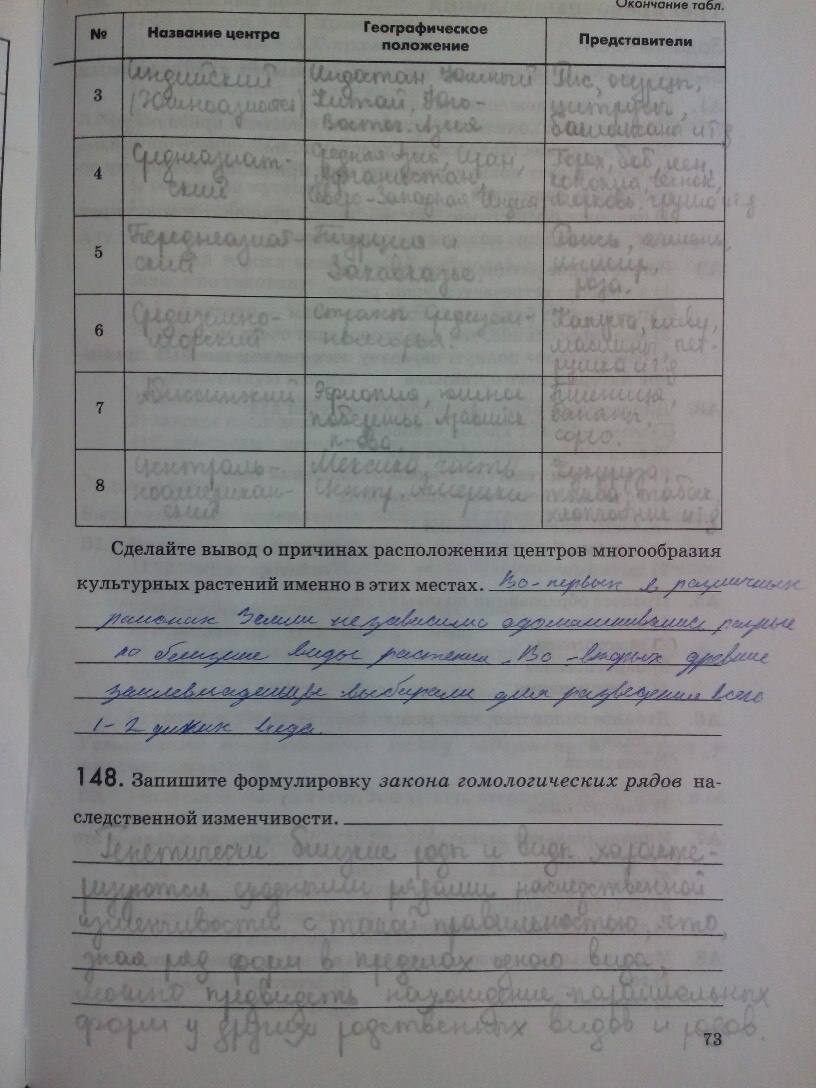 Окончание табл.
№ Название центра Географическое положение Представители
3 Индийский Индостан, Южный Рис, огурцы,
Китай, Юго- цитрусы,
Восточ. Азия баклажаны и т д
4 Среднеазиат- Средняя Азия, Иран, Горох, боб, лен,
ский Афганистан, конопля, чеснок,
Северо-Западная Индия морковь, груша и т д
5 Переднеазиат- Турция и Рожь, ячмень,
ский Закавказье. инжир,
роза.
6 Средиземно- Страны средизем- Капуста,
морский номорья. маслины, пет-
рушка и т д
7 Абиссинский Эфиопия, южное Пшеница,
побережье Аравийск бананы,
п-ова. сорго.
8 Централь- Мексика, часть Кукуруза,
ноамерикан- Центр. Америки тыква, табак,
ский хлопчатник и т д
Сделайте вывод о причинах расположения центров многообразия
культурных растений именно в этих местах. Во-первых в различных
районах Земли независимо одомашнивались разные
виды растений. Во-вторых древние
земледельцы выбирали для разведения всего
1-2 диких вида.
148. Запишите формулировку закона гомологических рядов на-
следственной изменчивости.
Генетически близкие роды и виды характе-
ризуются сходными рядами наследственной
изменчивости с такой правильностью, что,
зная ряд форм в пределах одного вида,
можно предвидеть нахождение параллельных
форм у других родственных видов и родов.
73